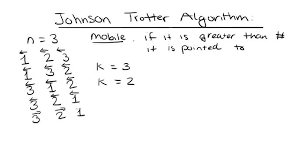 Johnson Trotter Algorithm.
n = 3
mobile. if it is greater than #
it is pointed to
←1 ←2 ←3
←1 ←3 ←2
←3 ←1 ←2
←3 ←2 ←1
→3 →2 1
K = 3
K = 2